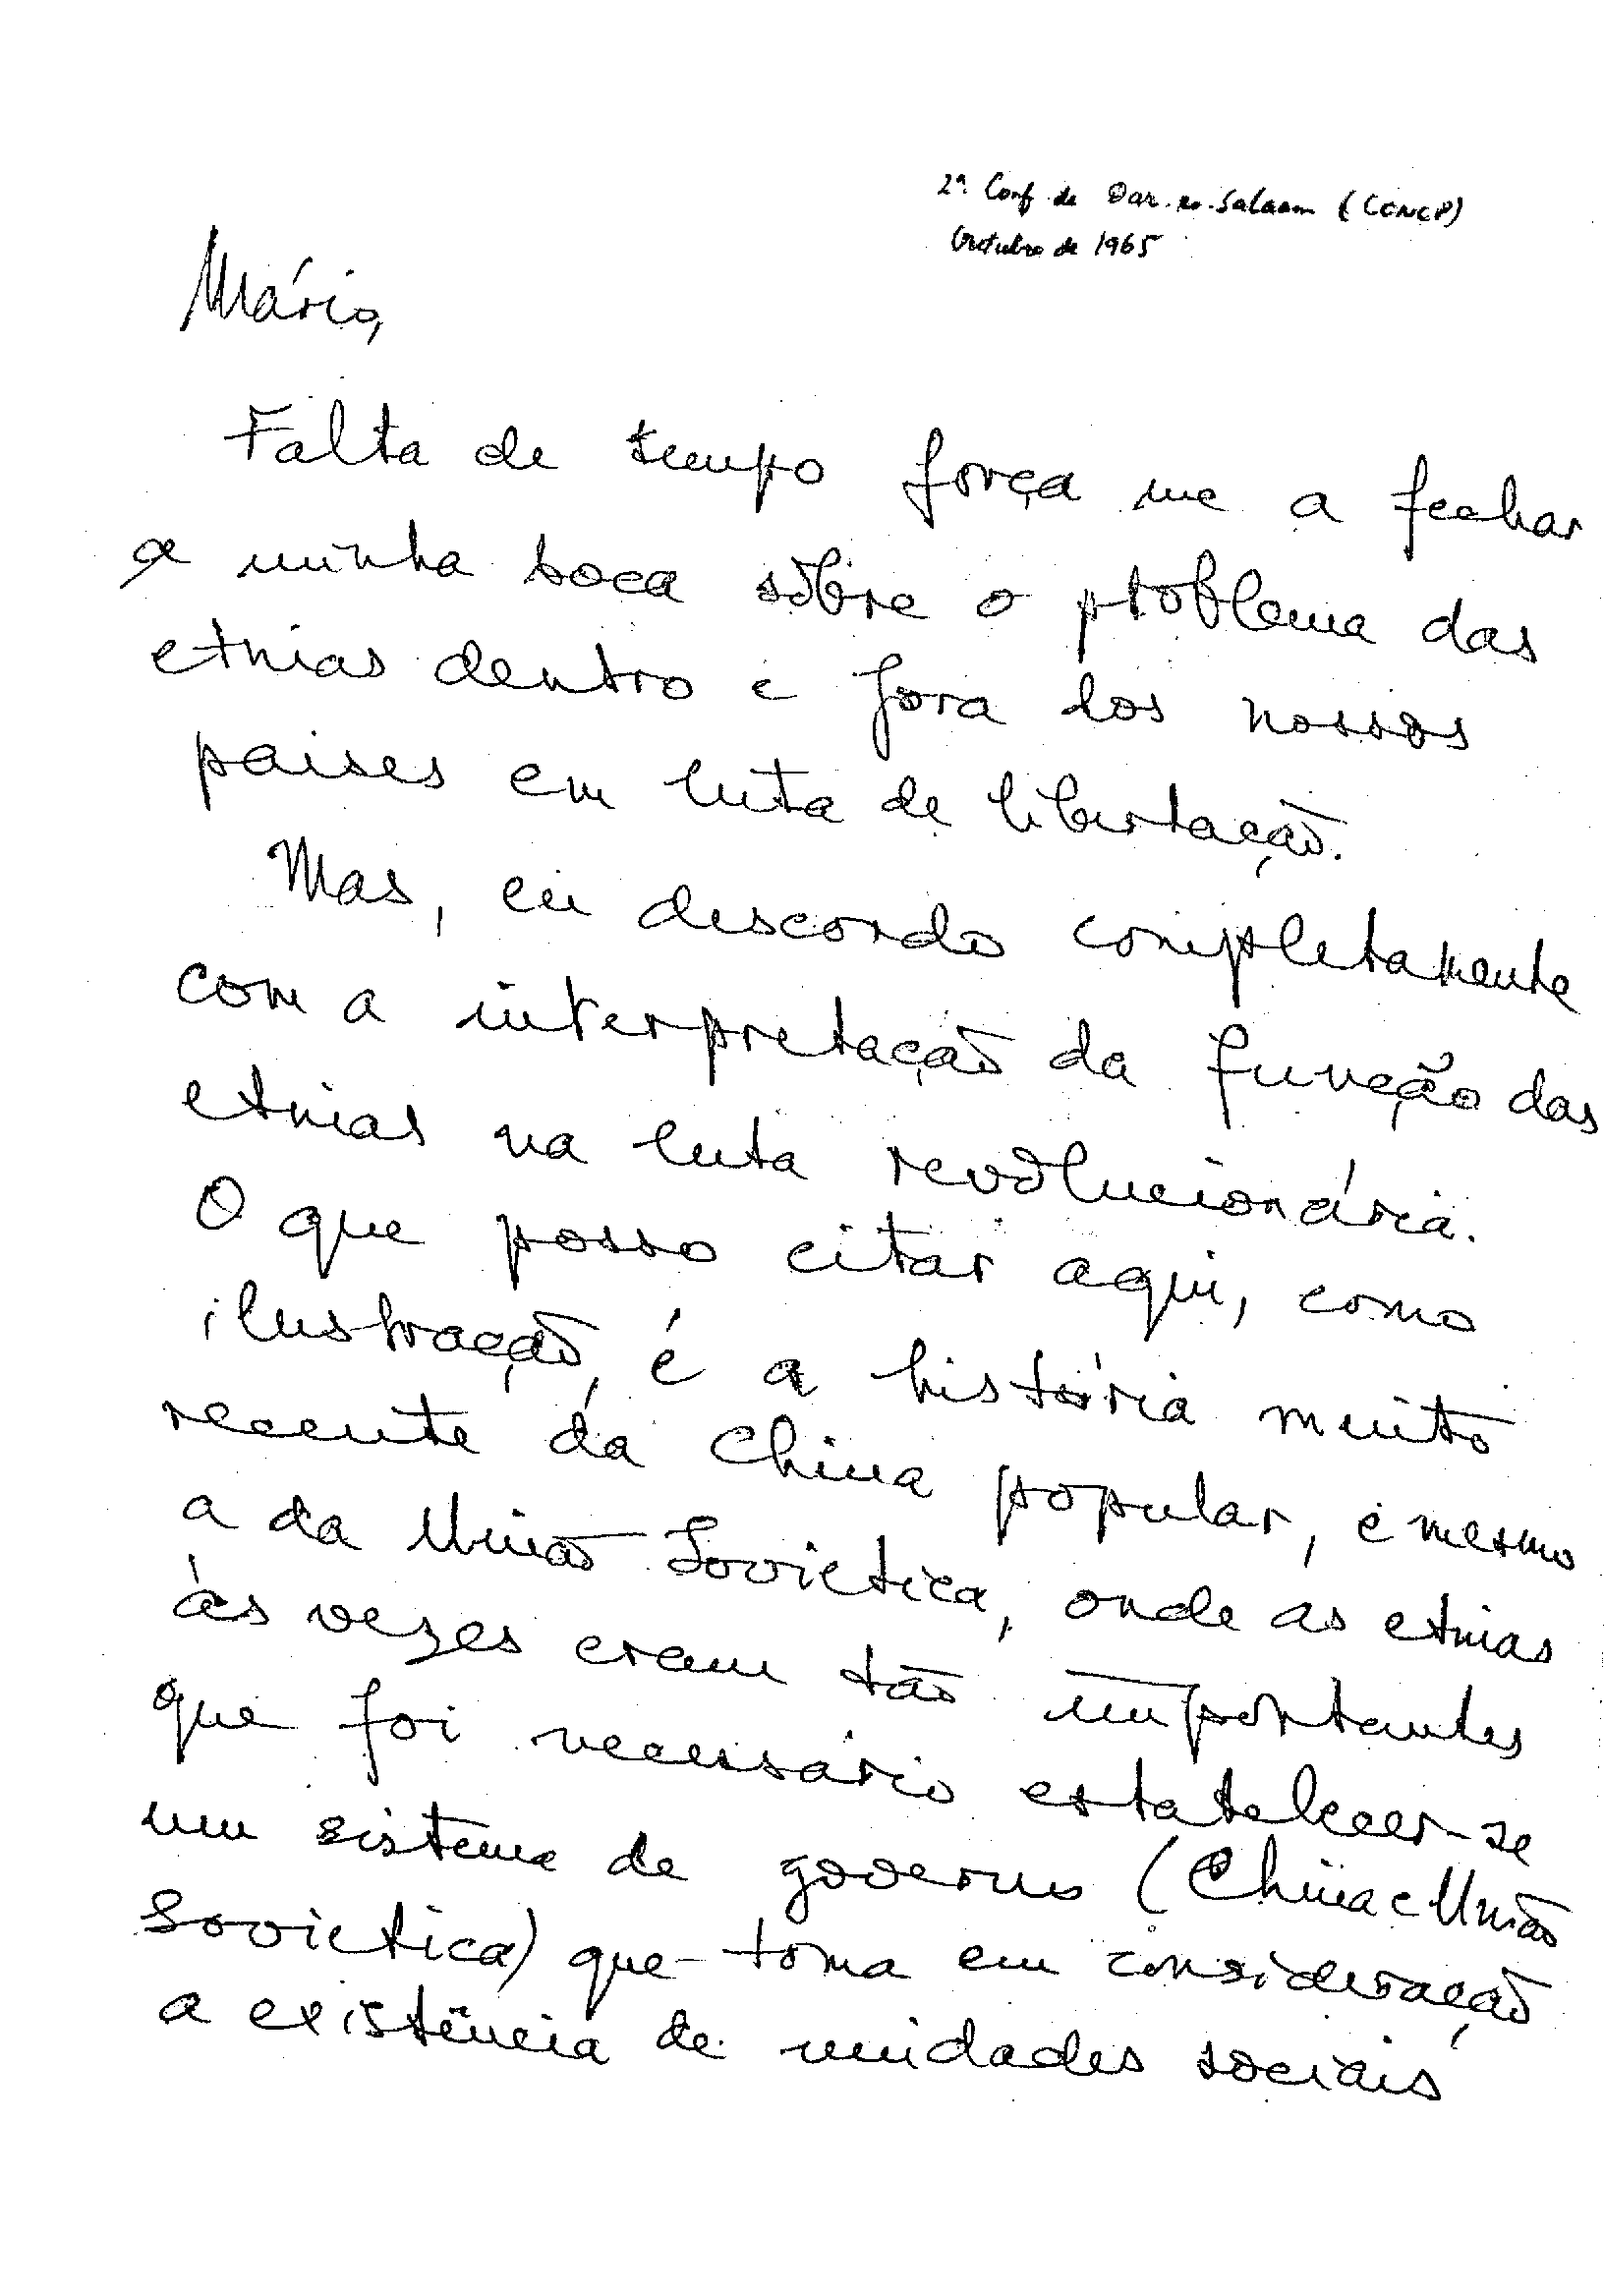 2ª Conf de Dar-es-Salaam (CONCP)
Outubro de 1965
Mário,
Falta de tempo força me a fechar
a minha boca sôbre o problema das
etnias dentro e fora dos nossos
paises em luta de libertação.
Mas, eu descordo completamente
com a interpretação da função das
etnias na luta revolucionária.
O que posso citar aqui, como
ilustração, é a história muito
recente da China popular, e mesmo
a da União Sovietica, onde as etnias
às vezes eram tão importantes
que foi necessário estabelecer-se
um sistema de governo (China e União
Sovietica) que toma em consideração
a existência de unidades sociais